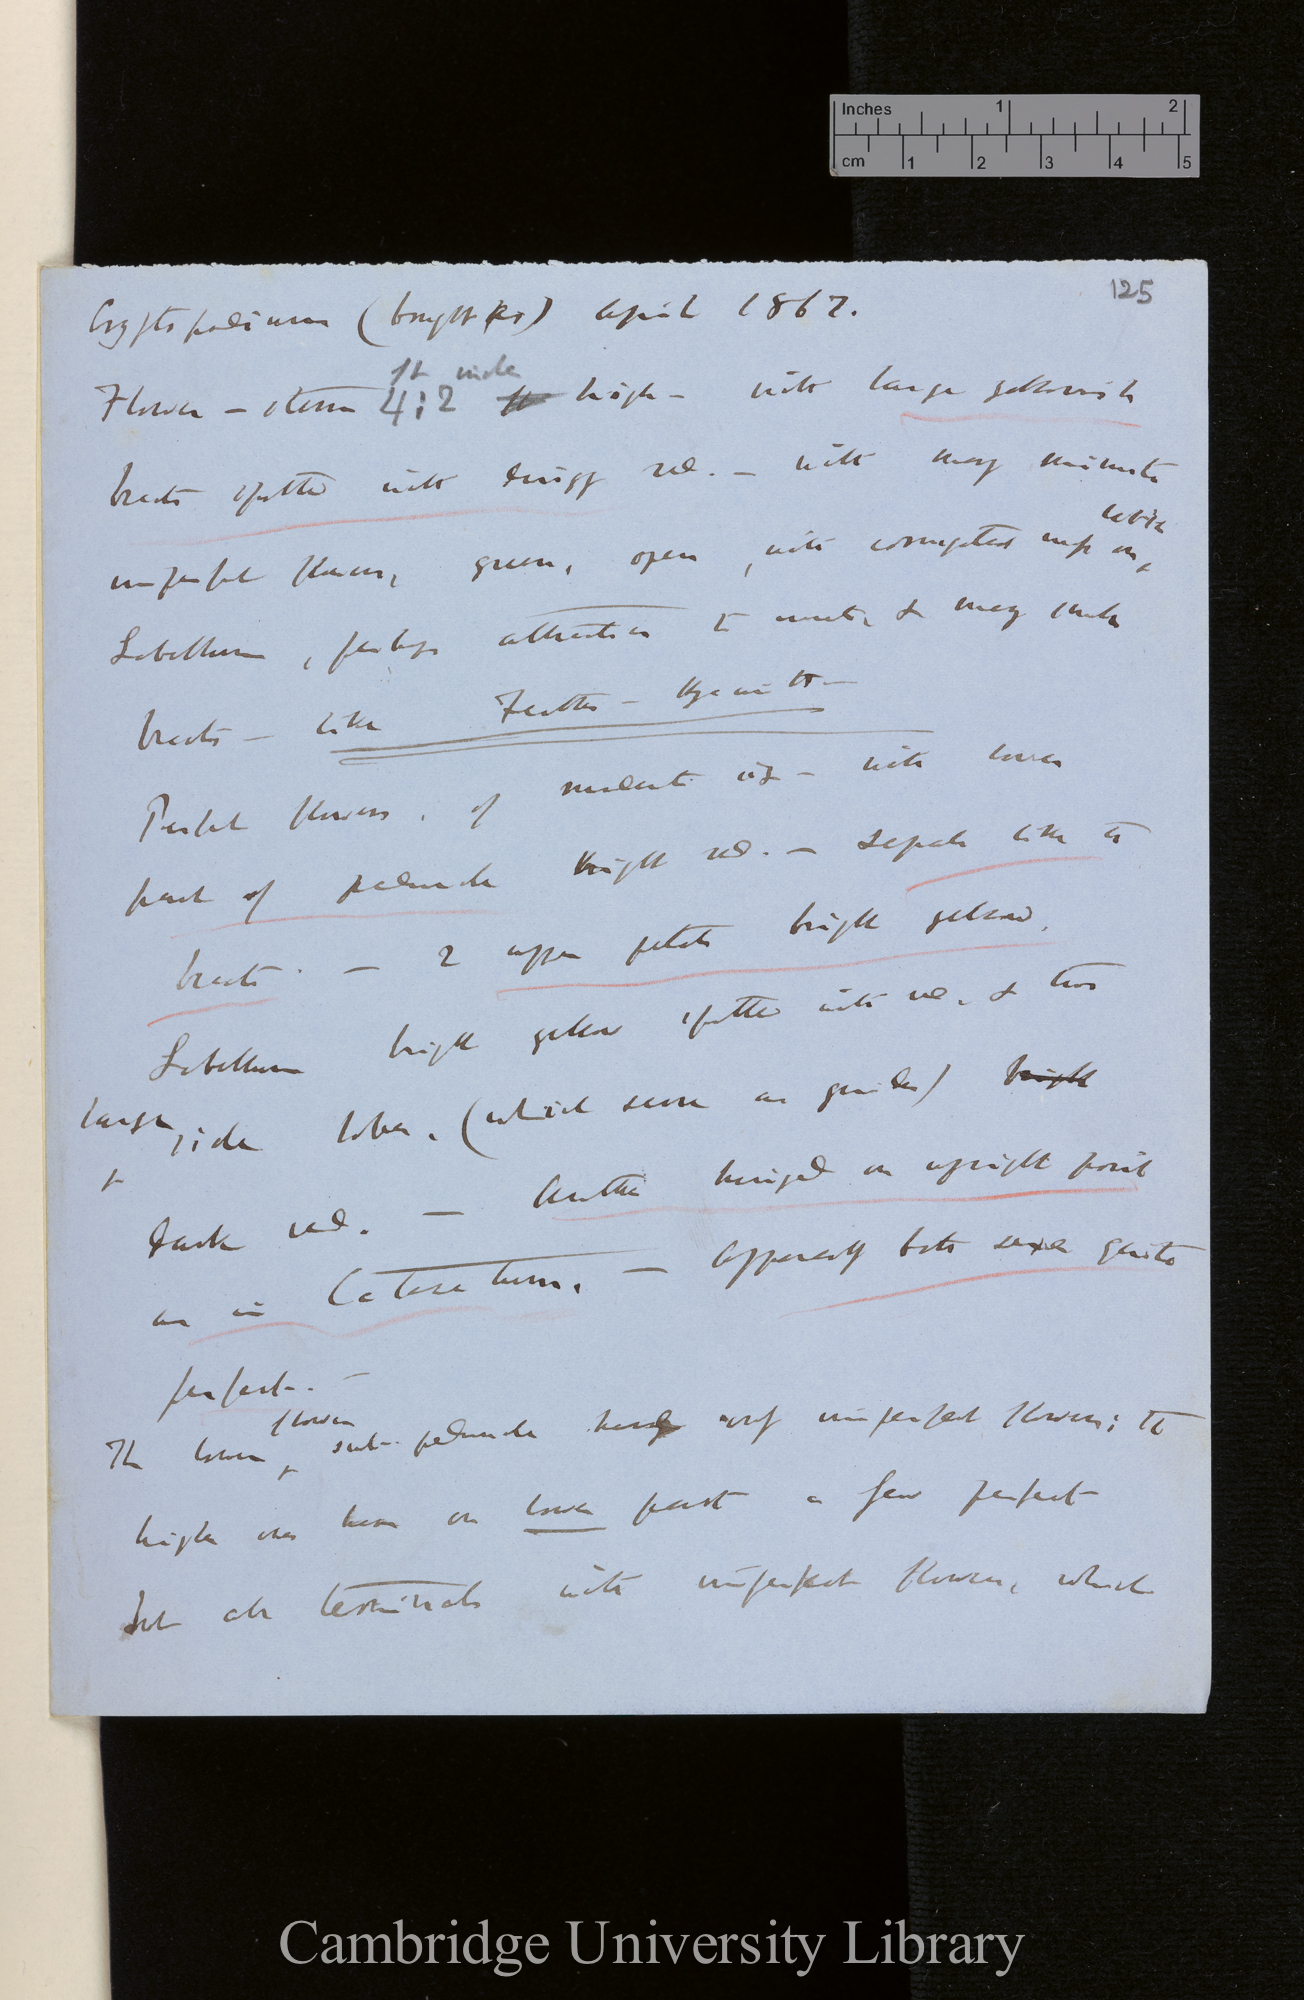 Inches 1 2
cm 1 2 3 4 5
125
Cyrtopodium ( ) April 1867.
ft inch
Flower – stem 4:2 ft high – with large yellowish
bracts spotted with dingy red. – with many minute
imperfect flowers, green, open, with corrugated
labia
Labellum, perhaps attractive to insects & many such
bracts – like Feather – Hyacinth –
Perfect flowers, of moderate size – with lower
part of peduncle bright red. – Sepals like to
bracts. – 2 upper petals bright yellow,
Labellum bright yellow spotted with red, & two
large side lobes, (which serve as guides) bright
dark red. – Anther hinged on upright point
as in Catasetum. – Apparently both sexes quite
perfect. –
flower
The lower sub-peduncles only imperfect flowers; the
higher ones have on lower part a few perfect
but all terminals with imperfect flowers, which
Cambridge University Library